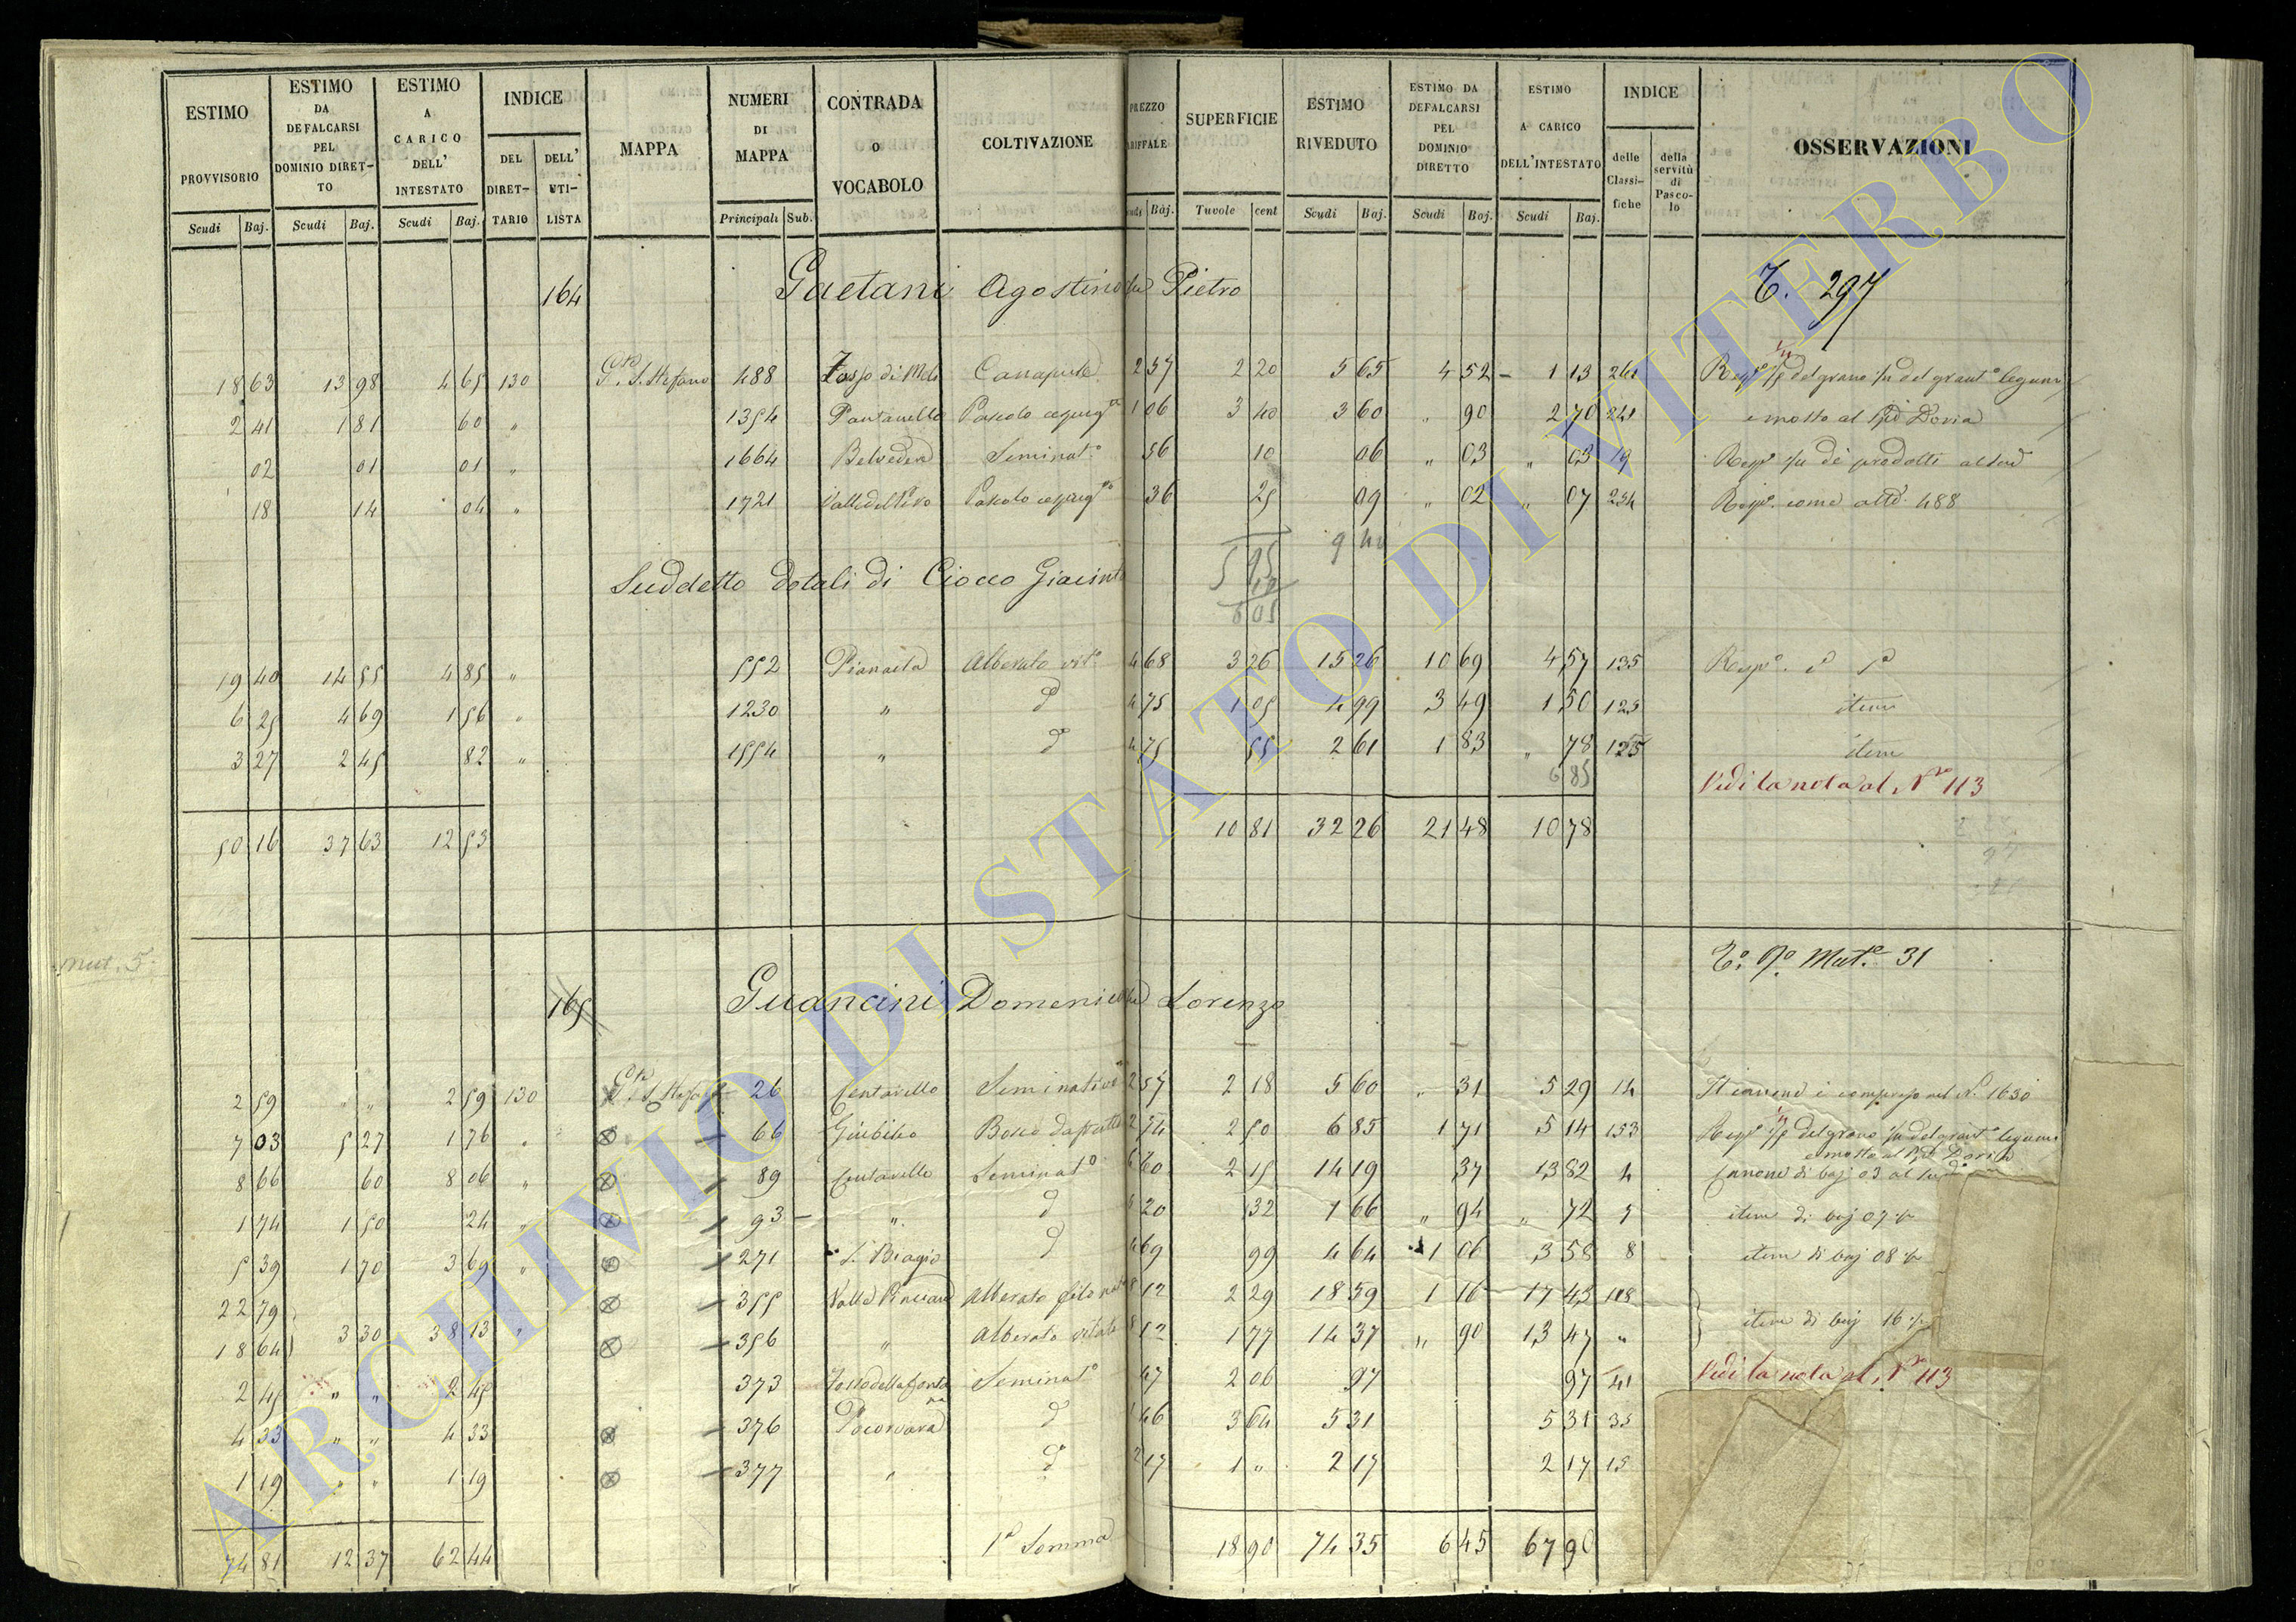 ESTIMO PROVVISORIO Scudi Baj.
ESTIMO DA DEFALCARSI PEL DOMINIO DIRETTO Scudi Baj.
ESTIMO A CARICO DELL' INTESTATO Scudi Baj.
INDICE DEL DIRETTARIO DELL' UTILISTA
MAPPA
NUMERI DI MAPPA Principali Sub.
CONTRADA O VOCABOLO
COLTIVAZIONE
PREZZO Baj.
SUPERFICIE Tavole cent
ESTIMO RIVEDUTO Scudi Baj.
ESTIMO DA DEFALCARSI PEL DOMINIO DIRETTO Scudi Baj.
ESTIMO A CARICO DELL'INTESTATO Scudi Baj.
INDICE delle Classifiche della servitù di Pascolo
OSSERVAZIONI
164 Gaetani Agostino fu Pietro T. 297
18 63 13 98 4 65 130 S. Stefano 488 Canapule 2 57 2 20 5 65 4 52 1 13 241
2 41 1 81 60 " 1354 Pantanello Pascolo 1 06 3 40 3 60 " 90 2 70 241 e mosto al Ppe Doria
02 01 01 " 1664 Belvedere Seminato 56 10 06 " 03 " 03 19
18 14 04 " 1721 Pascolo 36 25 09 " 02 " 07 234 Rispe come al 488
5 95 9 40
10
6 05
Suddetto dotali di Ciocco Giacinta
19 40 14 55 4 85 " 552 Alberato vito 4 68 3 26 15 26 10 69 4 57 135
6 25 4 69 1 56 " 1230 " d 4 75 1 05 4 99 3 49 1 50 125 item
3 27 2 45 82 " 1554 " do 4 75 55 2 61 1 83 " 78 125 item
6 85 Vedi la nota al No 113
50 16 37 63 12 53 10 81 32 26 21 48 10 78
Mut. 5
To. 9o Mute 31
165 Guancini Domenico fu Lorenzo
2 59 " " 2 59 130 S. Stefano 26 Centarello Seminativo 2 57 2 18 5 60 " 31 5 29 14 Il canone è compreso nel N. 1630
7 03 5 27 1 76 " 66 Giubileo Bosco da frutto 2 74 2 50 6 85 1 71 5 14 153
e mosto al Ppe Doria
8 66 60 8 06 " 89 Centarello Seminato 6 60 2 15 14 19 37 13 82 4 Canone di baj 03 al
1 74 1 50 24 " 93 " d 5 20 32 1 66 " 94 " 72 5 item di baj 07
5 39 1 70 3 69 " 271 S. Biagio d 4 69 99 4 64 1 06 3 58 8 item di baj 08
22 79 355 Valle Alberato 8 12 2 29 18 59 1 16 17 43 118
18 64 3 30 38 13 " 356 " Alberato vitato 8 12 1 77 14 37 " 90 13 47 " item di baj 16
2 45 " " 2 45 373 Seminato 47 2 06 97 97 41 Vedi la nota al No 113
4 33 " " 4 33 376 d 1 46 3 64 5 31 5 31 35
1 19 " " 1 19 377 " do 2 17 1 " 2 17 2 17 15
74 81 12 37 62 44 1a Somma 18 90 74 35 6 45 67 90
ARCHIVIO DI STATO DI VITERBO